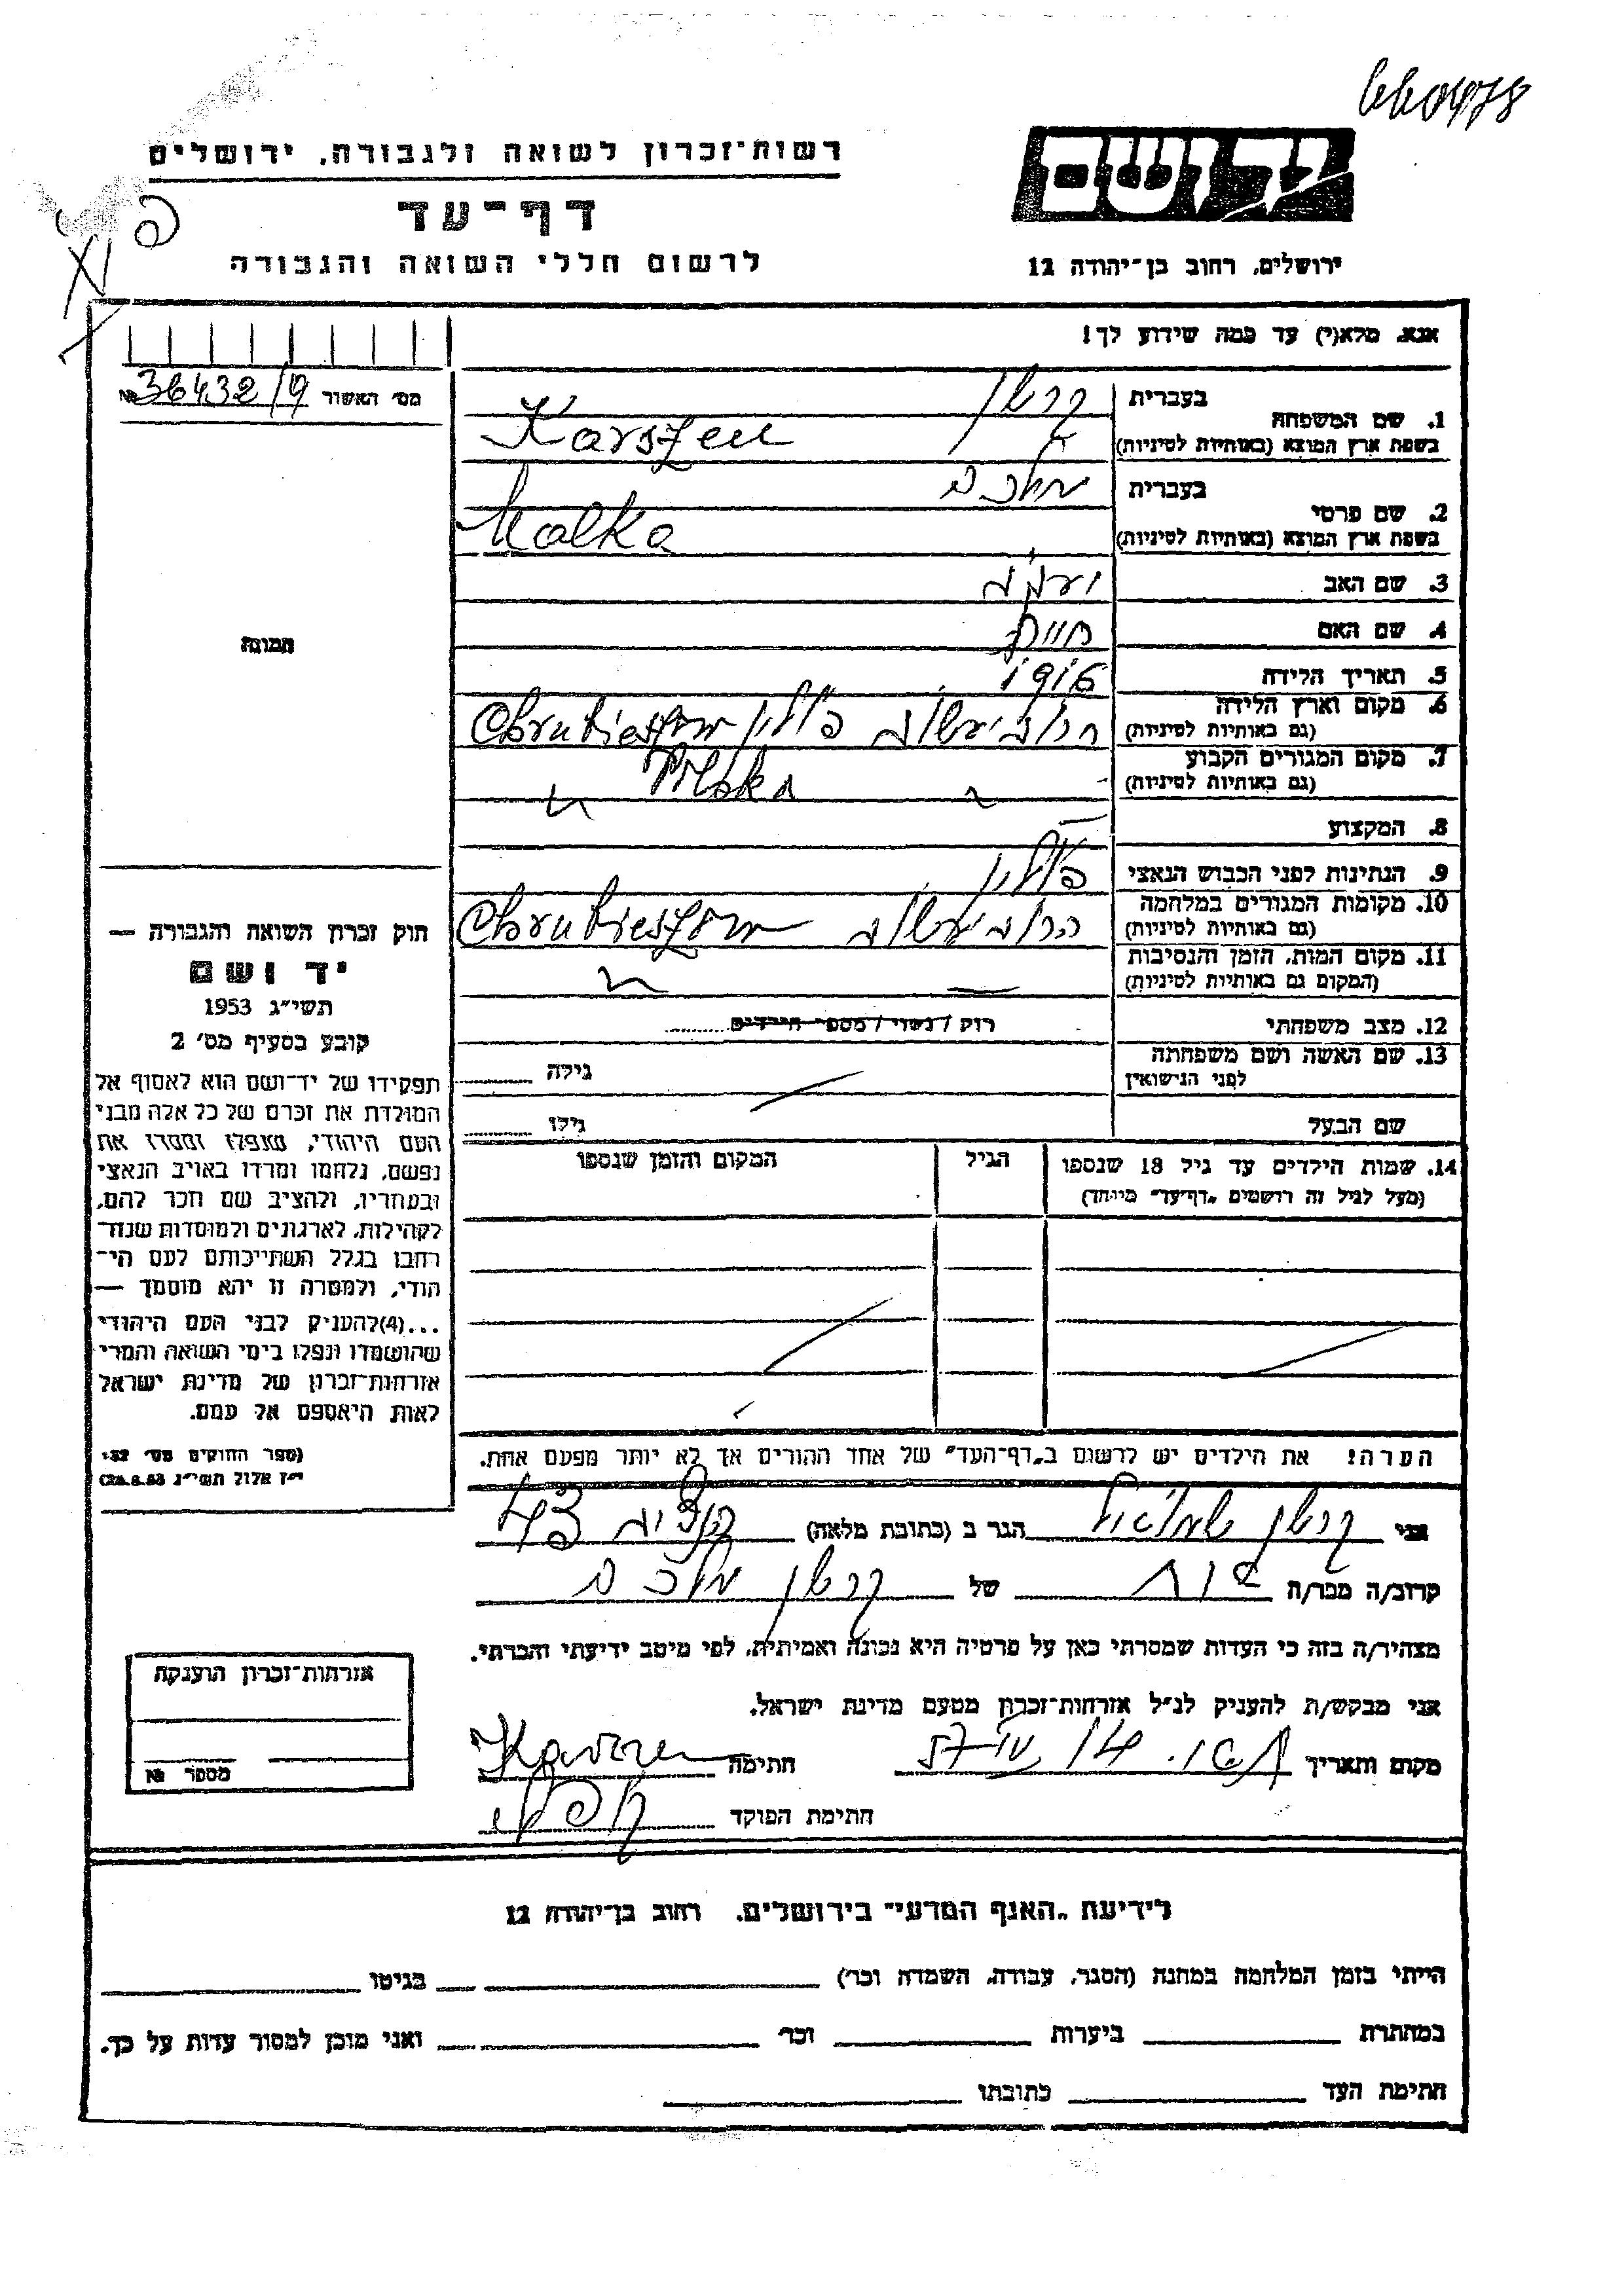 660478
רשות־זכרון לשואה ולגבורה, ירושלים
יד ושם
דף־עד
לרשום חללי השואה והגבורה
ירושלים, רחוב בן־יהודה 12
אנא, מלא(י) עד כמה שידוע לך!
מס׳ האשור № 36432/9
1. שם המשפחה
בעברית קרשן
בשפת ארץ המוצא (באותיות לטיניות) Karszen
2. שם פרטי
בעברית מלכה
בשפת ארץ המוצא (באותיות לטיניות) Malka
3. שם האב יעקב
4. שם האם
תמונה
5. תאריך הלידה 1916
6. מקום וארץ הלידה
(גם באותיות לטיניות) הרוביעשוב פולין Chrubieszow
Polska
7. מקום המגורים הקבוע
(גם באותיות לטיניות) " "
8. המקצוע —
9. הנתינות לפני הכבוש הנאצי פולין
10. מקומות המגורים במלחמה
(גם באותיות לטיניות) הרוביעשוב Chrubieszow
11. מקום המות, הזמן והנסיבות
(המקום גם באותיות לטיניות) — "
12. מצב משפחתי רווק / נשוי / מספר הילדים
13. שם האשה ושם משפחתה
לפני הנישואין גילה
שם הבעל גילו
14. שמות הילדים עד גיל 18 שנספו
(מעל לגיל זה רושמים „דף־עד” מיוחד)
הגיל
המקום והזמן שנספו
חוק זכרון השואה והגבורה —
יד ושם
תשי״ג 1953
קובע בסעיף מס׳ 2
תפקידו של יד־ושם הוא לאסוף אל
המולדת את זכרם של כל אלה מבני
העם היהודי, שנפלו ומסרו את
נפשם, נלחמו ומרדו באויב הנאצי
ובעוזריו, ולהציב שם וזכר להם,
לקהילות, לארגונים ולמוסדות שנח־
רבו בגלל השתייכותם לעם הי־
הודי, ולמטרה זו יהא מוסמך —
...(4)להעניק לבני העם היהודי
שהושמדו ונפלו בימי השואה והמרי
אזרחות־זכרון של מדינת ישראל
לאות היאספם אל עמם.
(ספר החוקים מס׳ 132
י״ז אלול תשי״ג 28.8.53)
הערה! את הילדים יש לרשום ב„דף־העד” של אחד ההורים אך לא יותר מפעם אחת.
אני קרשן שמואל הגר ב (כתובת מלאה) 43
קרוב/ה מכר/ה של קרשן מלכה
מצהיר/ה בזה כי העדות שמסרתי כאן על פרטיה היא נכונה ואמיתית, לפי מיטב ידיעתי והכרתי.
אני מבקש/ת להעניק לנ״ל אזרחות־זכרון מטעם מדינת ישראל.
מקום ותאריך חתימה
חתימת הפוקד
אזרחות־זכרון הוענקה
מספר №
לידיעת „האגף המדעי” בירושלים, רחוב בן־יהודה 12
הייתי בזמן המלחמה במחנה (הסגר, עבודה, השמדה וכו׳) בגיטו
במחתרת ביערות וכו׳ ואני מוכן למסור עדות על כך.
חתימת העד כתובתו